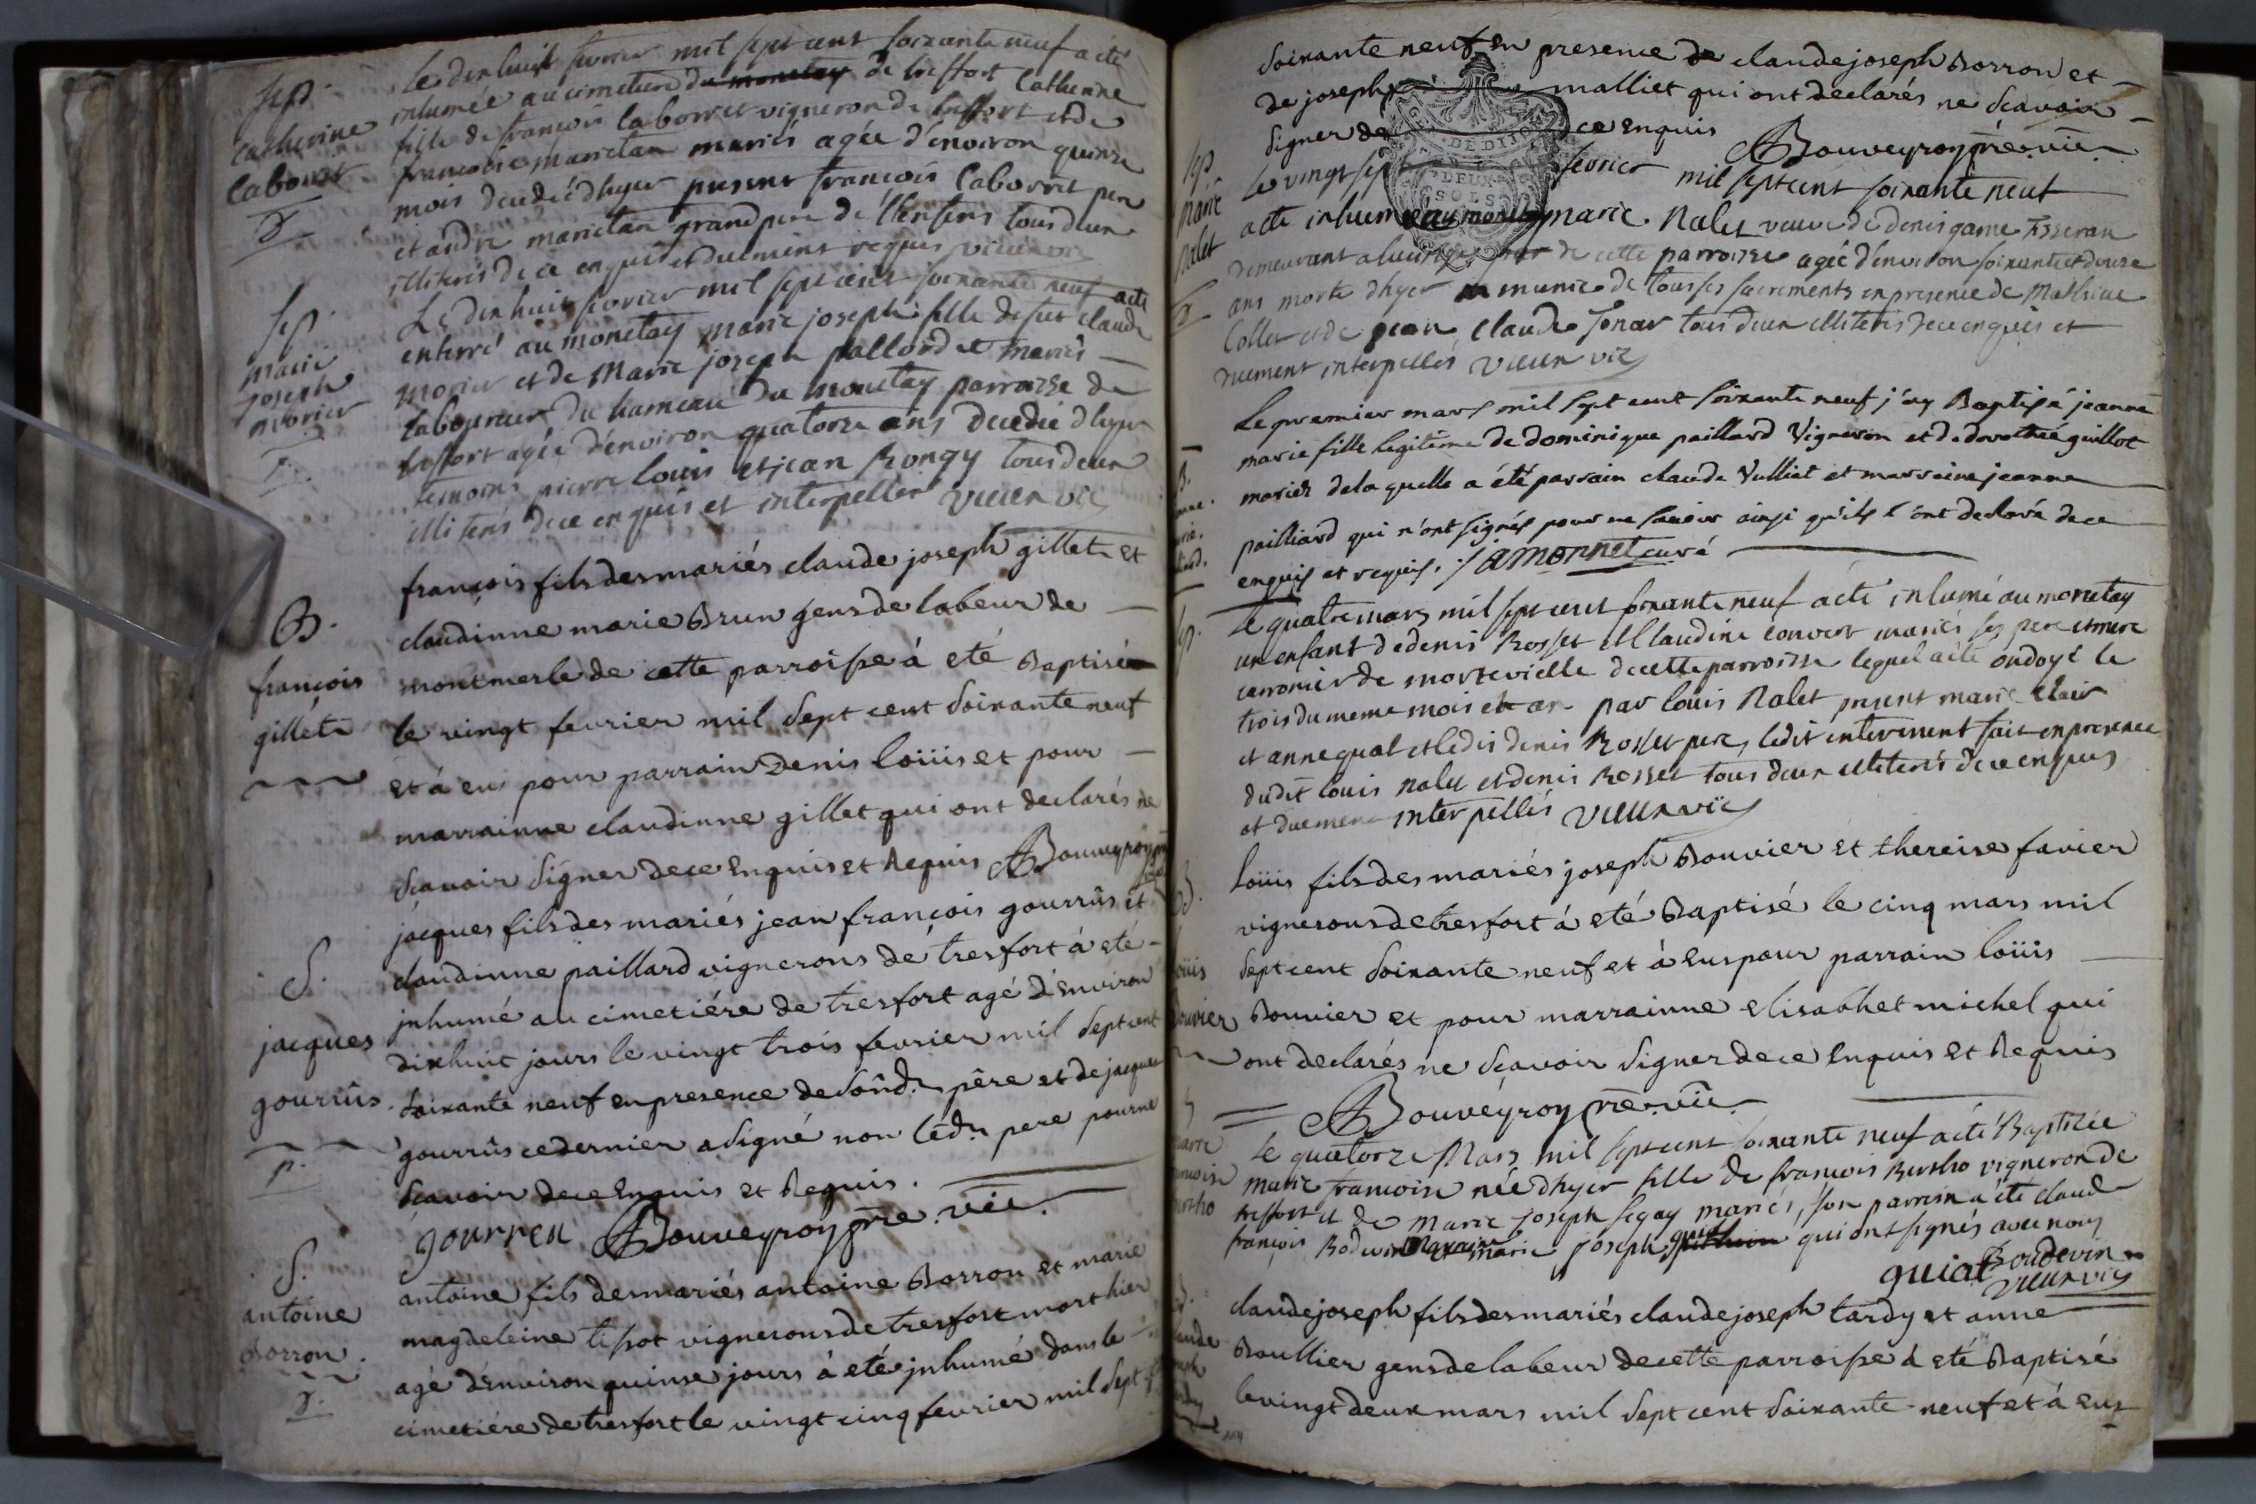 Sep.
catherine
laborret
Le dix huit fevrier mil sept cent soixante neuf a été
inhumée au cimetiere de treffort Catherine
fille de françois laborret vigneron de treffort et de
francoise marietan mariés agée d'environ quinze
mois decedé d'hyer present françois laborret pere
et andre marietan grand pere de l'enfant tous deux
illiterés de ce enquis et duement requis vieux vic
Sep.
marie
joseph
morier
Le dix huit fevrier mil sept cent soixante neuf a été
enterré au monetay marie joseph fille de feu claude
morier et de Marie joseph pallord mariés
laboureur du hameau du monetay parroisse de
treffort agée d'environ quatorze ans decedé d'hyer
temoins pierre louis et jean Rongy tous deux
illiterés de ce enquis et interpellés vieux vic
B.
françois
gillet
françois fils des mariés claude joseph gillet et
claudinne marie Brun gens de labeur de
montmerle de cette parroisse à eté Baptisé
le vingt fevrier mil sept cent soixante neuf
et à eu pour parrain Denis loüis et pour
marrainne claudinne gillet qui ont declarés ne
sçavoir signer de ce Enquis et Requis Bouveyron
S.
jacques
gourrûs.
p.
jacques fils des mariés jean françois gourrûs et
claudinne paillard vignerons de tresfort à eté
jnhumé au cimetiére de tresfort agé d'Environ
dixhuit jours le vingt trois fevrier mil sept cent
soixante neuf en presence de sond. pêre et de jacque
gourrûs ce dernier a signé non led. pere pour ne
sçavoir de ce Enquis et Requis.
gourreu Bouveyron prê. vic.
S.
antoine
Borron.
antoine fils des mariés antoine Borron et marie
magdeleine tissot vignerons de tresfort mort hier
agé d'Environ quinse jours à eté jnhumé dans le
cimetiére de tresfort le vingt cinq fevrier mil sept
soixante neuf en presence de claude joseph Borron et
de joseph malliet qui ont déclarés ne sçavoir
signer de ce enquis Bouveyron prê. vic.
Sep
Marie
Nalet
Le vingt sept fevrier mil sept cent soixante neuf
a été inhumé au monetay marie Nalet veuve de denis game Tisseran
demeurant a de cette parroisse agée d'environ soixante et douze
ans morte d'hyer munie de tous ses sacrements en presence de Mathieu
Collet et de jean claude tous deux illiterés de ce enquis et
duement interpellés vieux vic
Le premier mars mil sept cent soixante neuf j'ay Baptisé jeanne
marie fille legitime de dominique paillard Vigneron et de dorothée guillot
mariez de laquelle a été parrain claude Vulliet et marraine jeanne
pailliard qui n'ont signés pour ne savoir ainsi qu'ils l'ont declaré de ce
enquis et requis. Mamonnet curé
Le quatre mars mil sept cent soixante neuf a été inhumé au monetay
un enfant de denis Rosset et Claudine convert mariés ses pere et mere
de mortevielle de cette parroisse lequel a été ondoyé le
trois du meme mois et an par louis Nalet present marie clair
et anne gual et ledit denis Rosset pere, ledit enterrement fait en presence
dudit louis nalet et denis Rosset tous deux illiterés de ce enquis
et duement interpellés vieux vic
loüis fils des mariés joseph Bouvier et thereise favier
vignerons de tresfort à eté Baptisé le cinq mars mil
sept cent soixante neuf et à Eu pour parrain loüis
Bouvier et pour marrainne elisabhet michel qui
ont declarés ne sçavoir signer de ce Enquis et Requis
Bouveyron prê. vic.
Le quatorze Mars mil sept cent soixante neuf a été Baptisée
Marie francoise née d'hyer fille de francois Bertho vigneron de
treffort et de Marie joseph segay mariés, son parrein a été claud
françois Boduvin maraine marie joseph guiat qui ont signés avec nous
guiat Boudevin
vieux vic
claude joseph fils des mariés claude joseph tardy et anne
Boullier gens de labeur de cette parroisse à eté Baptisé
le vingt deux mars mil sept cent soixante neuf et à Eu